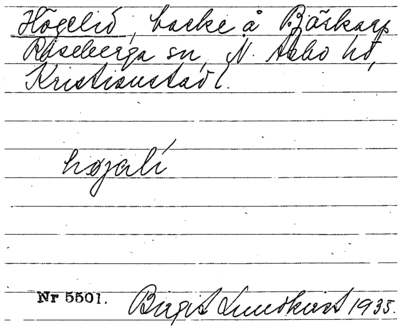 Högelid, backe å Bjärkarp
Röseberga sn, N. Åsbo hd,
Kristianstad l.
hǫgali
Nr 5501.
Birgit Lundkvist 1935.